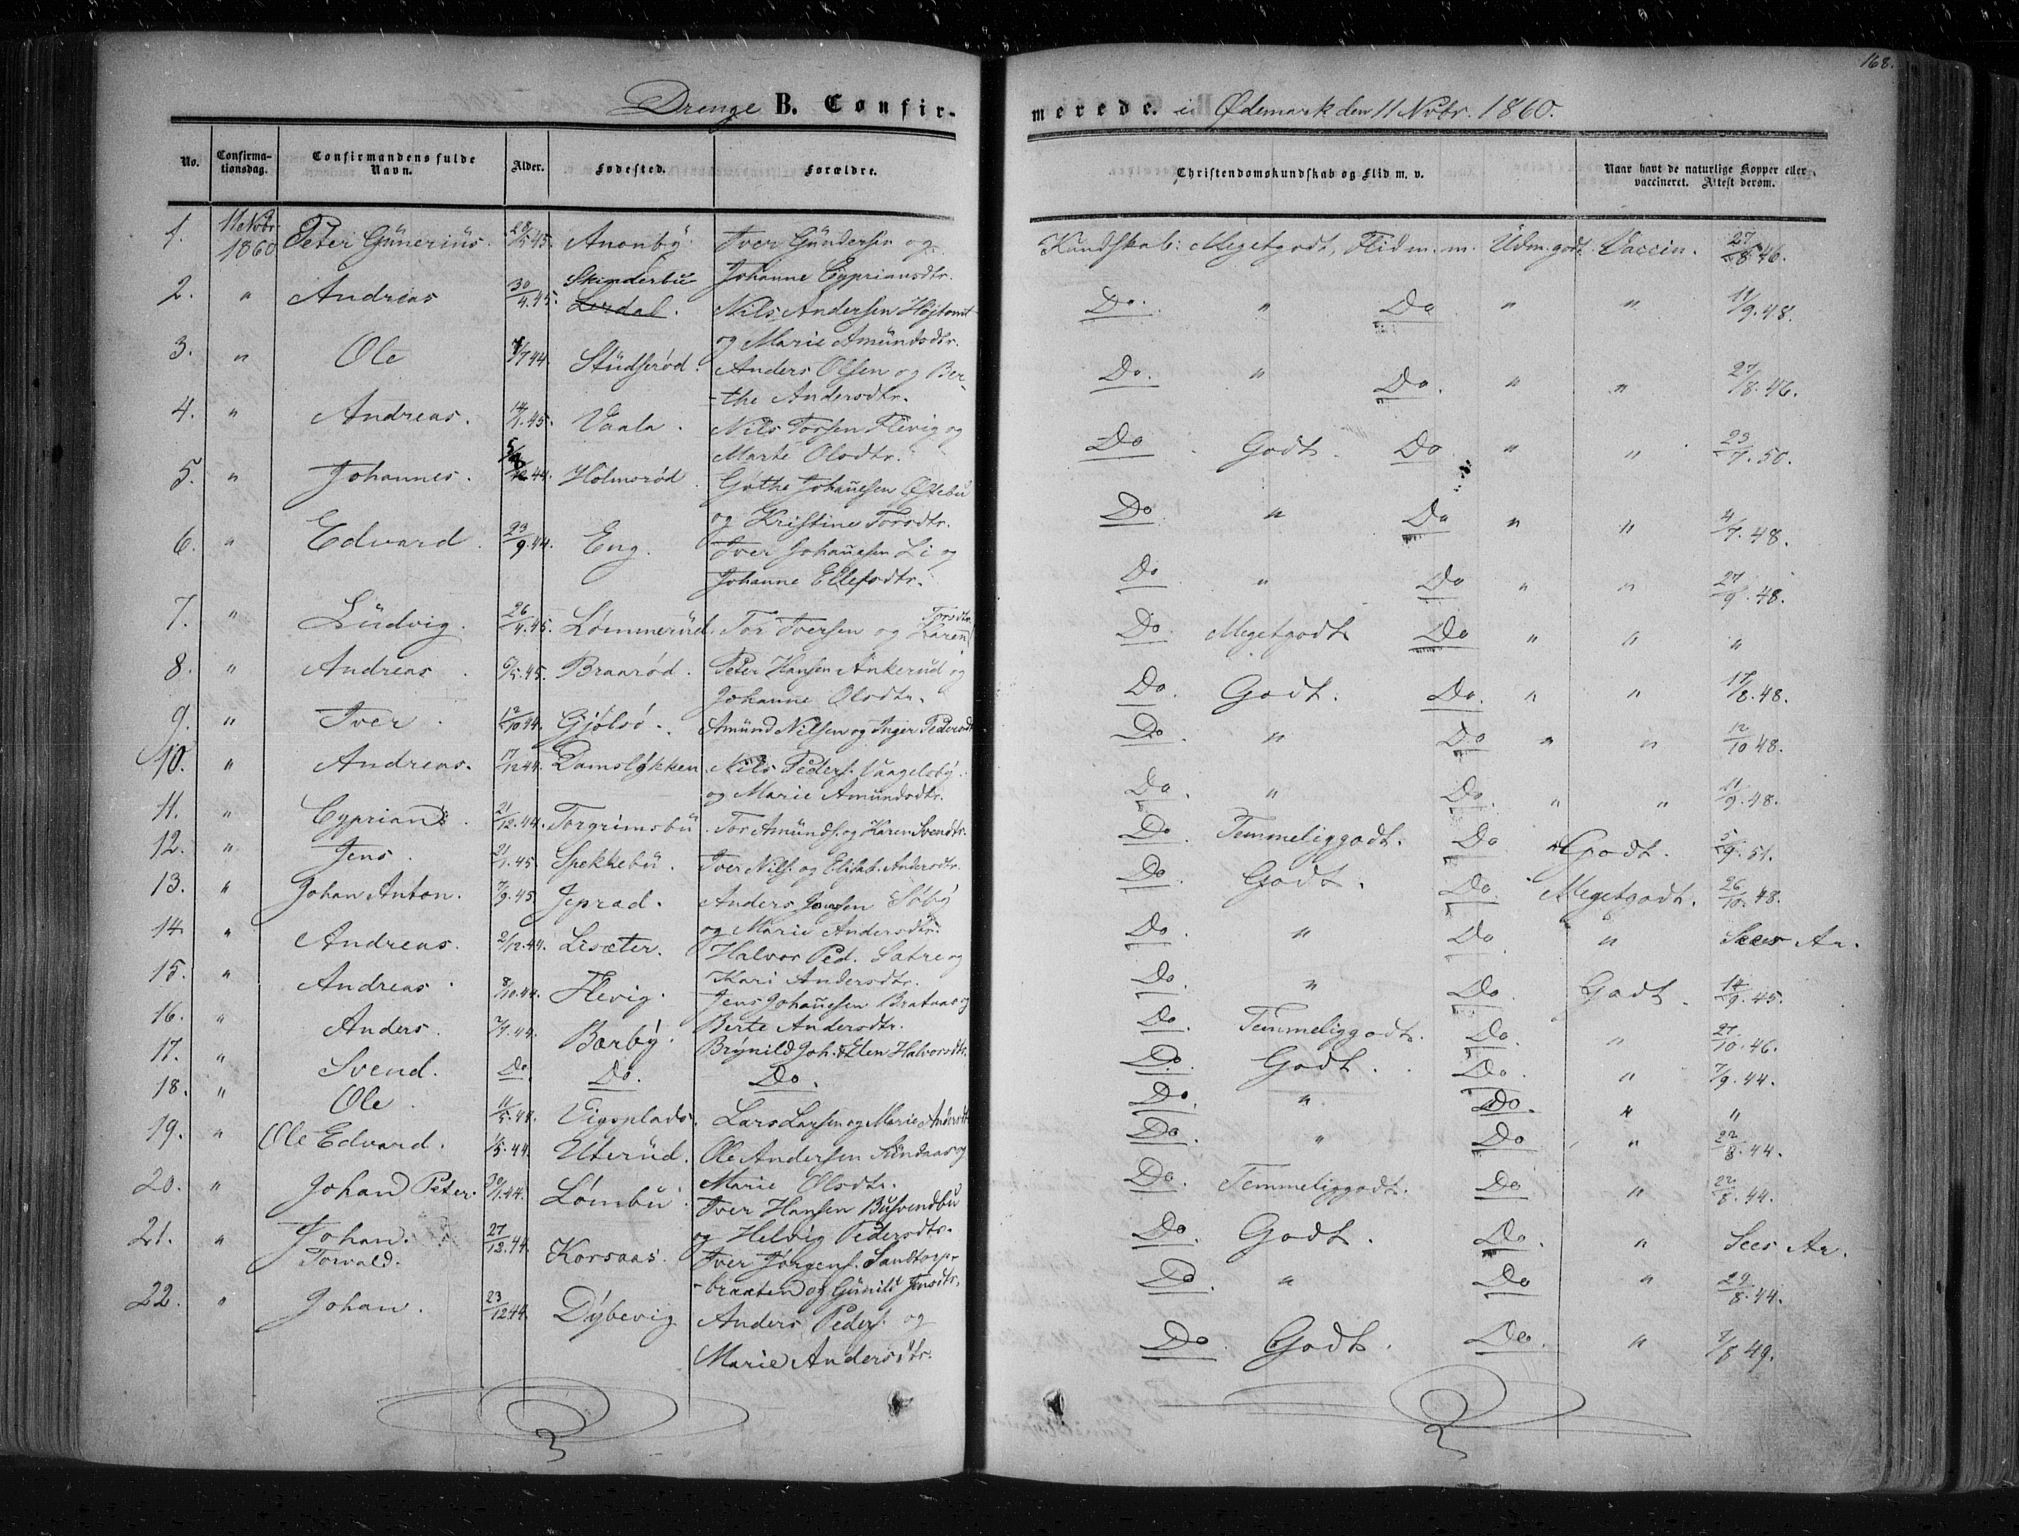 168.
Drenge B. Confirmerede. i Ødemark den 11 Nvbr. 1860.
No. Confirmationsdag. Confirmandens fulde Navn. Alder. Fødested. Forældre. Christendomskundskab og Flid m. v. Naar havt de naturlige Kopper eller vaccineret. Attest derom.
1. 11 Nvbr 1860 Peter Günerius. 28/5 45. Anonbÿ. Iver Gündersen og Johanne Cypriansdtr. Kundskab: Megetgodt, Flid m. m. Udm. godt. Vaccin. 27/8. 46.
2. " Andreas 30/4. 45. Skinderbu Lerdal. Nils Andersen Højtomt og Marie Amündsdtr. Do. " Do " " 11/9. 48.
3. " Ole 7/7 44 Stüdserød. Anders Olsen og Berthe Andersdtr. Do. " Do. " " 27/8. 46.
4. " Andreas. 45. Vaala. Nils Torsen Flevig og Marte Olsdtr. Do. Godt. Do " " 23/7. 50.
5. " Johannes. 44. Holmsrød. Gøthe Johañesen Østebu og Kristine Torsdtr. Do " Do " " 4/7. 48.
6. " Edvard. 23/9. 44. Eng. Iver Johañesen Li og Johanne Ellefsdtr. Do " Do " " 27/9. 48.
7. " Lüdvig. 26/4. 45. Lømmerüd. Tor Iversen og Karen Torsdtr. Do. Megetgodt Do " " "
8. " Andreas. 6/5. 45. Braarød. Peter Hansen Ankerud og Johanne Olsdtr. Do. Godt. Do. " " 17/8. 48.
9. " Iver. 12/10 44. Gjølsø. Amünd Nilsen og Inger Pedersdt Do. " Do " " 12/10 48.
10. " Andreas. 17/12 44. Damsløkken. Nils Peders. Vaagelsbÿ. og Marie Amündsdtr. Do. " Do. " " 11/9. 48.
11. " Cyprian. 21/12. 44. Torgrimsbü. Tor Amünds. og Karen Svendsdtr. Do. Temmeliggodt. Do. Godt. 5/9. 51.
12. " Jens. 21/1. 45 Spekkebü. Iver Nils. og Elisab. Andersdtr. Do. Godt. Do. Megetgodt. 26/10. 48.
13. " Johan Anton. 7/9. 45. Jeprad. Anders Jensen Søbÿ og Marie Andersdtr. Do. " Do. " Sees An.
14. " Andreas. 2/12. 44. Lisæter. Halvor Ped. Satre og Kari Andersdtr. Do. " Do. Godt. 14/9. 45.
15. " Andreas. 8/10. 44. Flevig. Jens Johañesen Brataas og Berte Andersdtr. Do. Temmeliggodt. Do. " 27/10. 46.
16. " Anders. 7/1. 44. Bærbÿ. Brÿnild Joh. & Elen Halvorsdtr. Do. Godt. Do. " 7/9. 44.
17. " Svend. Do Do. Do. Do. " Do. " "
18. " Ole. 11/5. 44. Vigsplads. Lars Larsen og Marie Andersdt Do. " Do " 22/8. 44.
19. " Ole Edvard. 44. Uterüd. Ole Andersen og Marie Olsdtr. Do. Temmeliggodt. Do " 22/8. 44.
20. " Johan Peter. 30/1. 44. Lømbü. Iver Hansen Busvendbu og Helvig Pedersdtr. Do. Godt. Do. " Sees An.
21. " Johan Torvald. 27/12. 44. Korsaas. Iver Jørgens. Sandtorpbraaten og Günild Jensdtr. Do. " Do " 29/8. 44.
22. " Johan. 23/12 44. Dÿbevig Anders Peders. og Marie Andersdtr. Do. Godt. Do " 7/8 49.